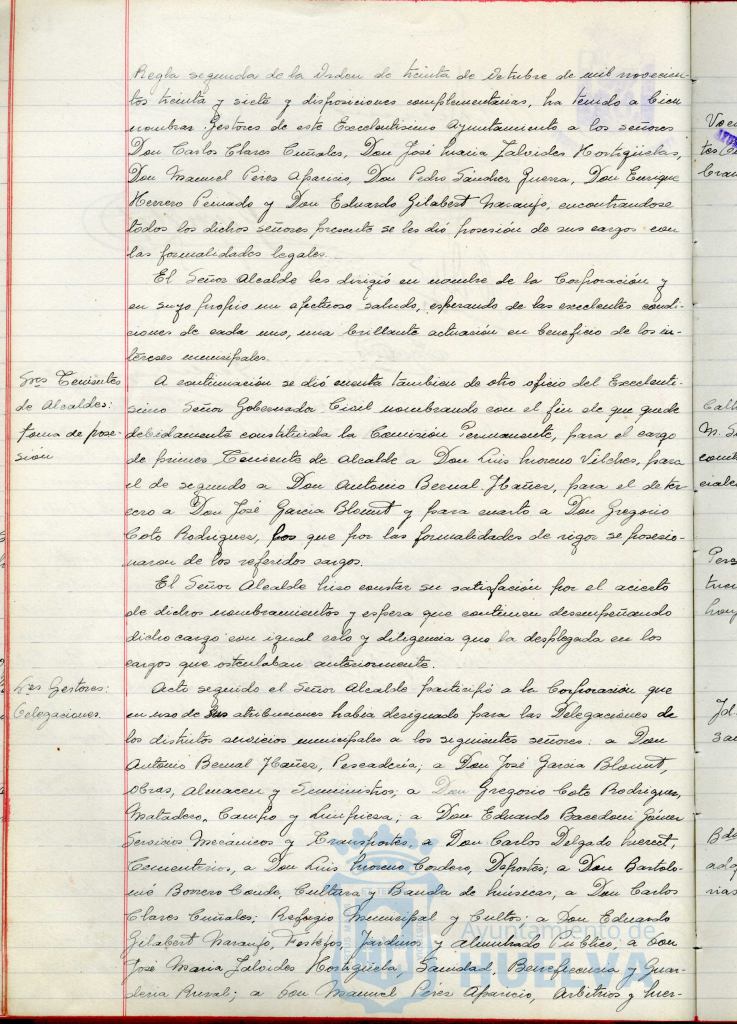 Regla segunda de la Orden de treinta de Octubre de mil novecien-
tos treinta y siete y disposiciones complementarias, ha tenido a bien
nombrar Gestores de este Excelentisimo Ayuntamiento a los señores
Don Carlos Clares Cuñales, Don José Maria Zalvides Hostigüelas,
Don Manuel Peres Aparicio, Don Pedro Sánchez Guerra, Don Enrique
Herrero Penado y Don Eduardo Gilabert Naranjo, encontrandose
todos los dichos señores presente se les dió posesión de sus cargos con
las formalidades legales.
El Señor Alcalde les dirigió en nombre de la Corporación y
en suyo propio un afectuoso saludo, esperando de las excelentes condi-
ciones de cada uno, una brillante actuación en beneficio de los in-
tereses municipales.
Sres Tenientes
de Alcaldes:
toma de pose-
sión
A continuación se dió cuenta tambien de otro oficio del Excelenti-
simo Señor Gobernador Civil nombrando con el fin de que quede
debidamente constituida la Comisión Permanente, para el cargo
de primer Teniente de Alcalde a Don Luis Moreno Vilches, para
el de segundo a Don Antonio Bernal Ibañez, para el de ter-
cero a Don José Garcia Blount y para cuarto a Don Gregorio
Coto Rodriguez, los que por las formalidades de rigor se posesio-
naron de los referidos cargos.
El Señor Alcalde hiso constar su satisfación por el acierto
de dichos nombramientos y espera que continuen desempeñando
dicho cargo con igual celo y diligencia que la desplegada en los
cargos que ostentaban anteriormente.
Sres Gestores:
Delegaciones.
Acto seguido el Señor Alcalde participó a la Corporación que
en uso de sus atribuciones habia designado para las Delegaciones de
los distintos servicios municipales a los siguientes señores: a Don
Antonio Bernal Ibañez, Pescaderia; a Don José Garcia Blount,
Obras, Almacen y Suministros; a Don Gregorio Coto Rodriguez,
Matadero, Campo y Limpiesa; a Don Eduardo Bacedoni
Servicios Mecánicos y Transportes, a Don Carlos Delgado
Cementerios, a Don Luis Moreno Cordero, Deportes; a Don Bartolo-
mé Borrero Conde, Cultura y Banda de Músicas, a Don Carlos
Clares Cuñales; Refugio Municipal y Cultos: a Don Eduardo
Gilabert Naranjo, Festejos, Jardines y Alumbrado Público; a Don
José Maria Zalvides Hostigüela, Sanidad, Beneficencia y Guar-
deria Rural; a Don Manuel Péres Aparicio, Arbitrios y Mer-
Ayuntamiento de
HUELVA